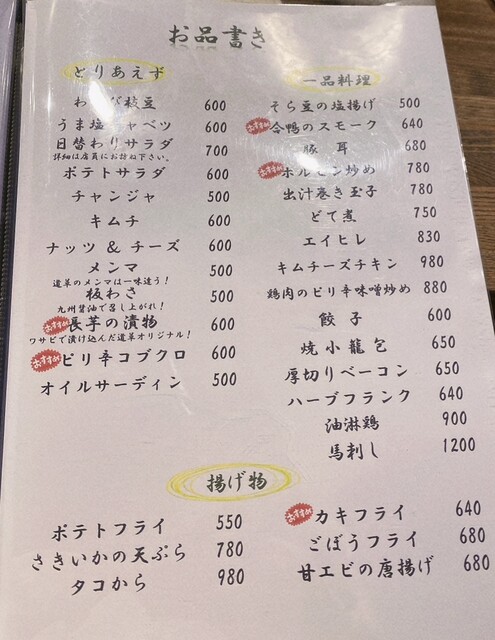 お品書き
とりあえず
枝豆 600
うま塩キャベツ 600
日替わりサラダ 700
詳細は店員にお訪ね下さい。
ポテトサラダ 600
チャンジャ 500
キムチ 600
ナッツ & チーズ 600
メンマ 500
道草のメンマは一味違う!
板わさ 500
九州醤油で召し上がれ!
おすすめ 長芋の漬物 600
ワサビで漬け込んだ道草オリジナル!
おすすめ ピリ辛コブクロ 600
オイルサーディン 500
一品料理
そら豆の塩揚げ 500
おすすめ 合鴨のスモーク 640
豚耳 680
おすすめ ホルモン炒め 780
出汁巻き玉子 780
どて煮 750
エイヒレ 830
キムチーズチキン 980
鶏肉のピリ辛味噌炒め 880
餃子 600
焼小龍包 650
厚切りベーコン 650
ハーブフランク 640
油淋鶏 900
馬刺し 1200
揚げ物
ポテトフライ 550
さきいかの天ぷら 780
タコから 980
おすすめ カキフライ 640
ごぼうフライ 680
甘エビの唐揚げ 680